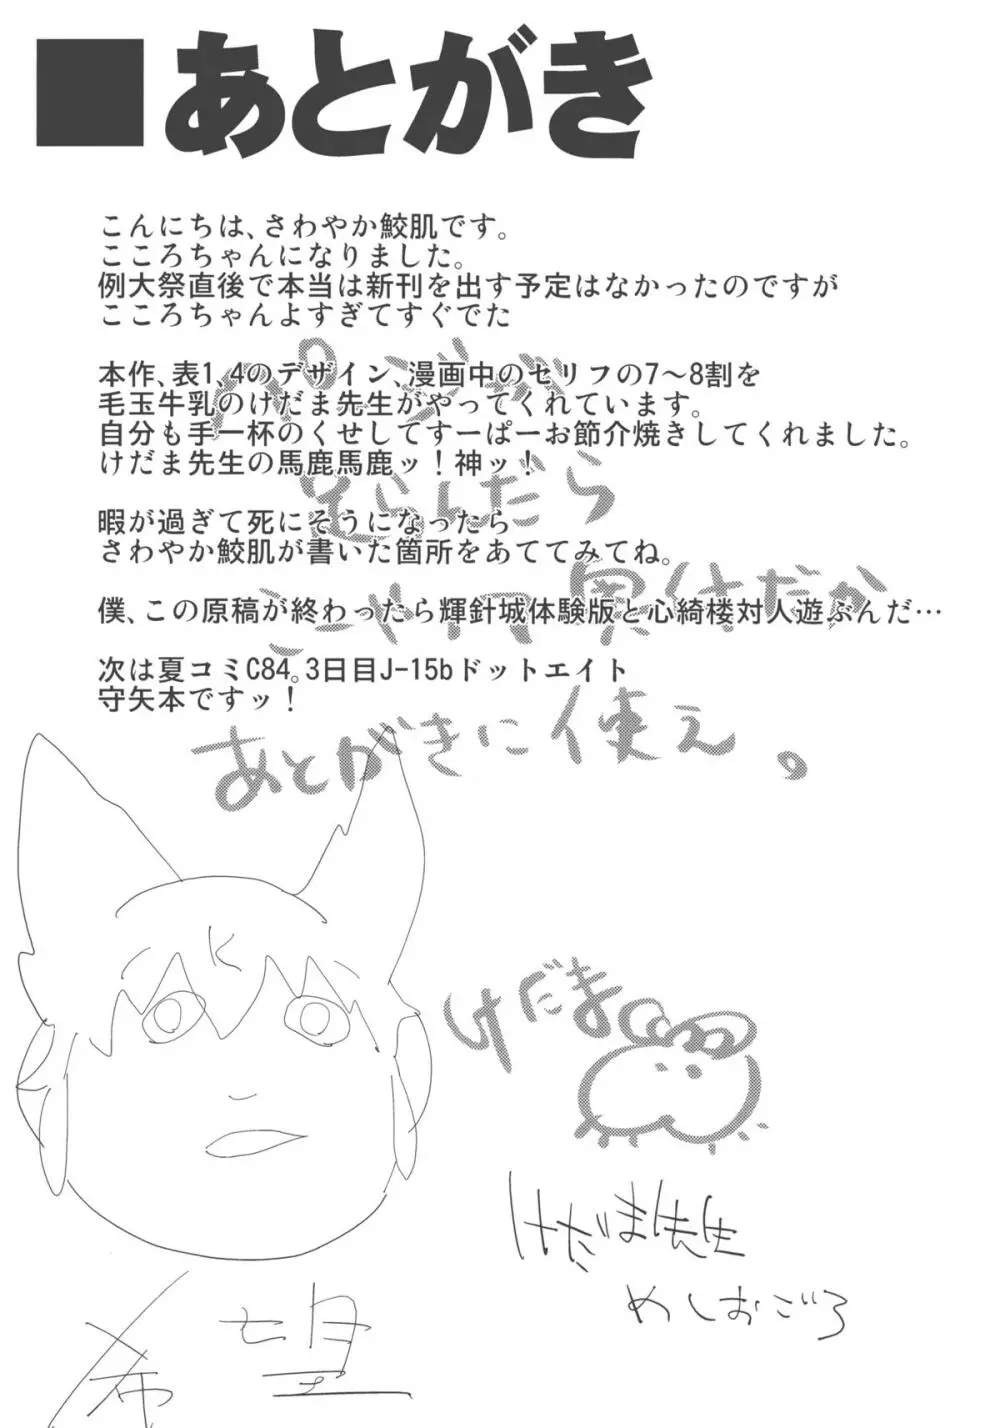 ■あとがき
こんにちは、さわやか鮫肌です。
こころちゃんになりました。
例大祭直後で本当は新刊を出す予定はなかったのですが
こころちゃんよすぎてすぐでた
本作、表1、4のデザイン、漫画中のセリフの7～8割を
毛玉牛乳のけだま先生がやってくれています。
自分も手一杯のくせしてすーぱーお節介焼きしてくれました。
けだま先生の馬鹿馬鹿ッ！神ッ！
暇が過ぎて死にそうになったら
さわやか鮫肌が書いた箇所をあててみてね。
僕、この原稿が終わったら輝針城体験版と心綺楼対人遊ぶんだ…
次は夏コミC84。3日目J-15bドットエイト
守矢本ですッ！
ページが
足らんだら
あとがきに使え。
けだま
けだま先生
めしおごろ
希望